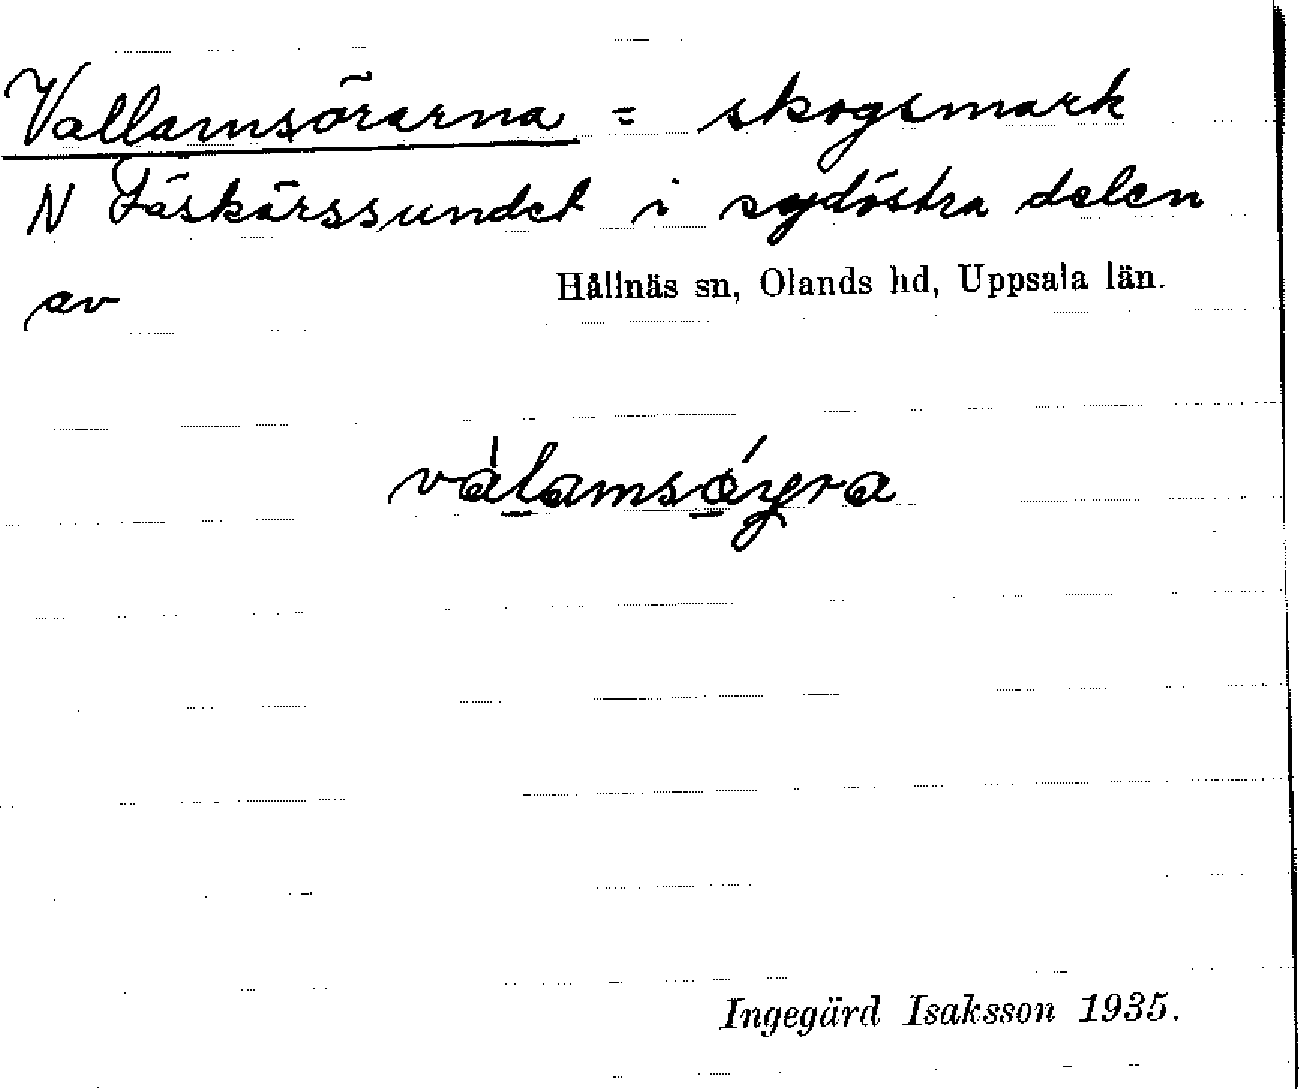 Vallamsörarna = skogsmark
N Fäskärssundet i sydöstra delen
av Hållnäs sn, Olands hd, Uppsala län.
vàlamsǿyra
Ingegärd Isaksson 1935.